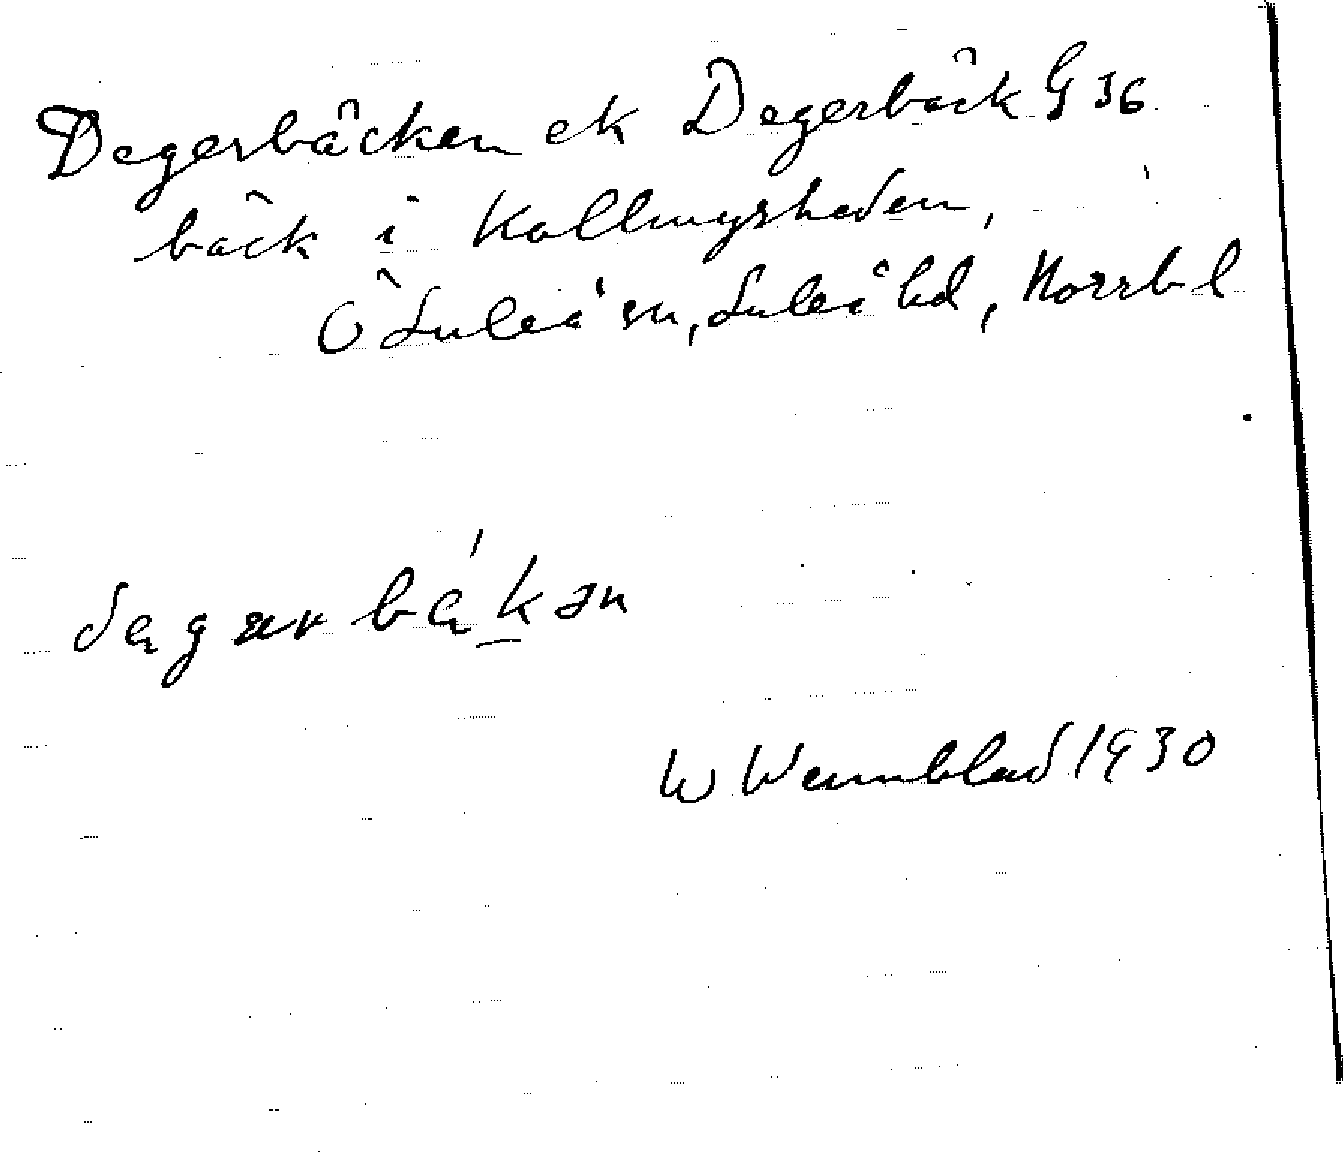 Degerbäcken ek Degerbäck G 36
bäck i Kallmyrheden,
Ö Luleå sn, Luleå hd, Norrb l
W Wennblad 1930